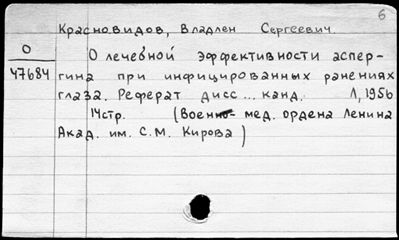 6
Красновидов, Владлен Сергеевич.
О
47684
О лечебной эффективности аспер-
гина при инфицированных ранениях
глаза. Реферат дисс... канд. Л, 1956
14стр. (Военно- мед. ордена Ленина
Акад. им. С.М. Кирова)